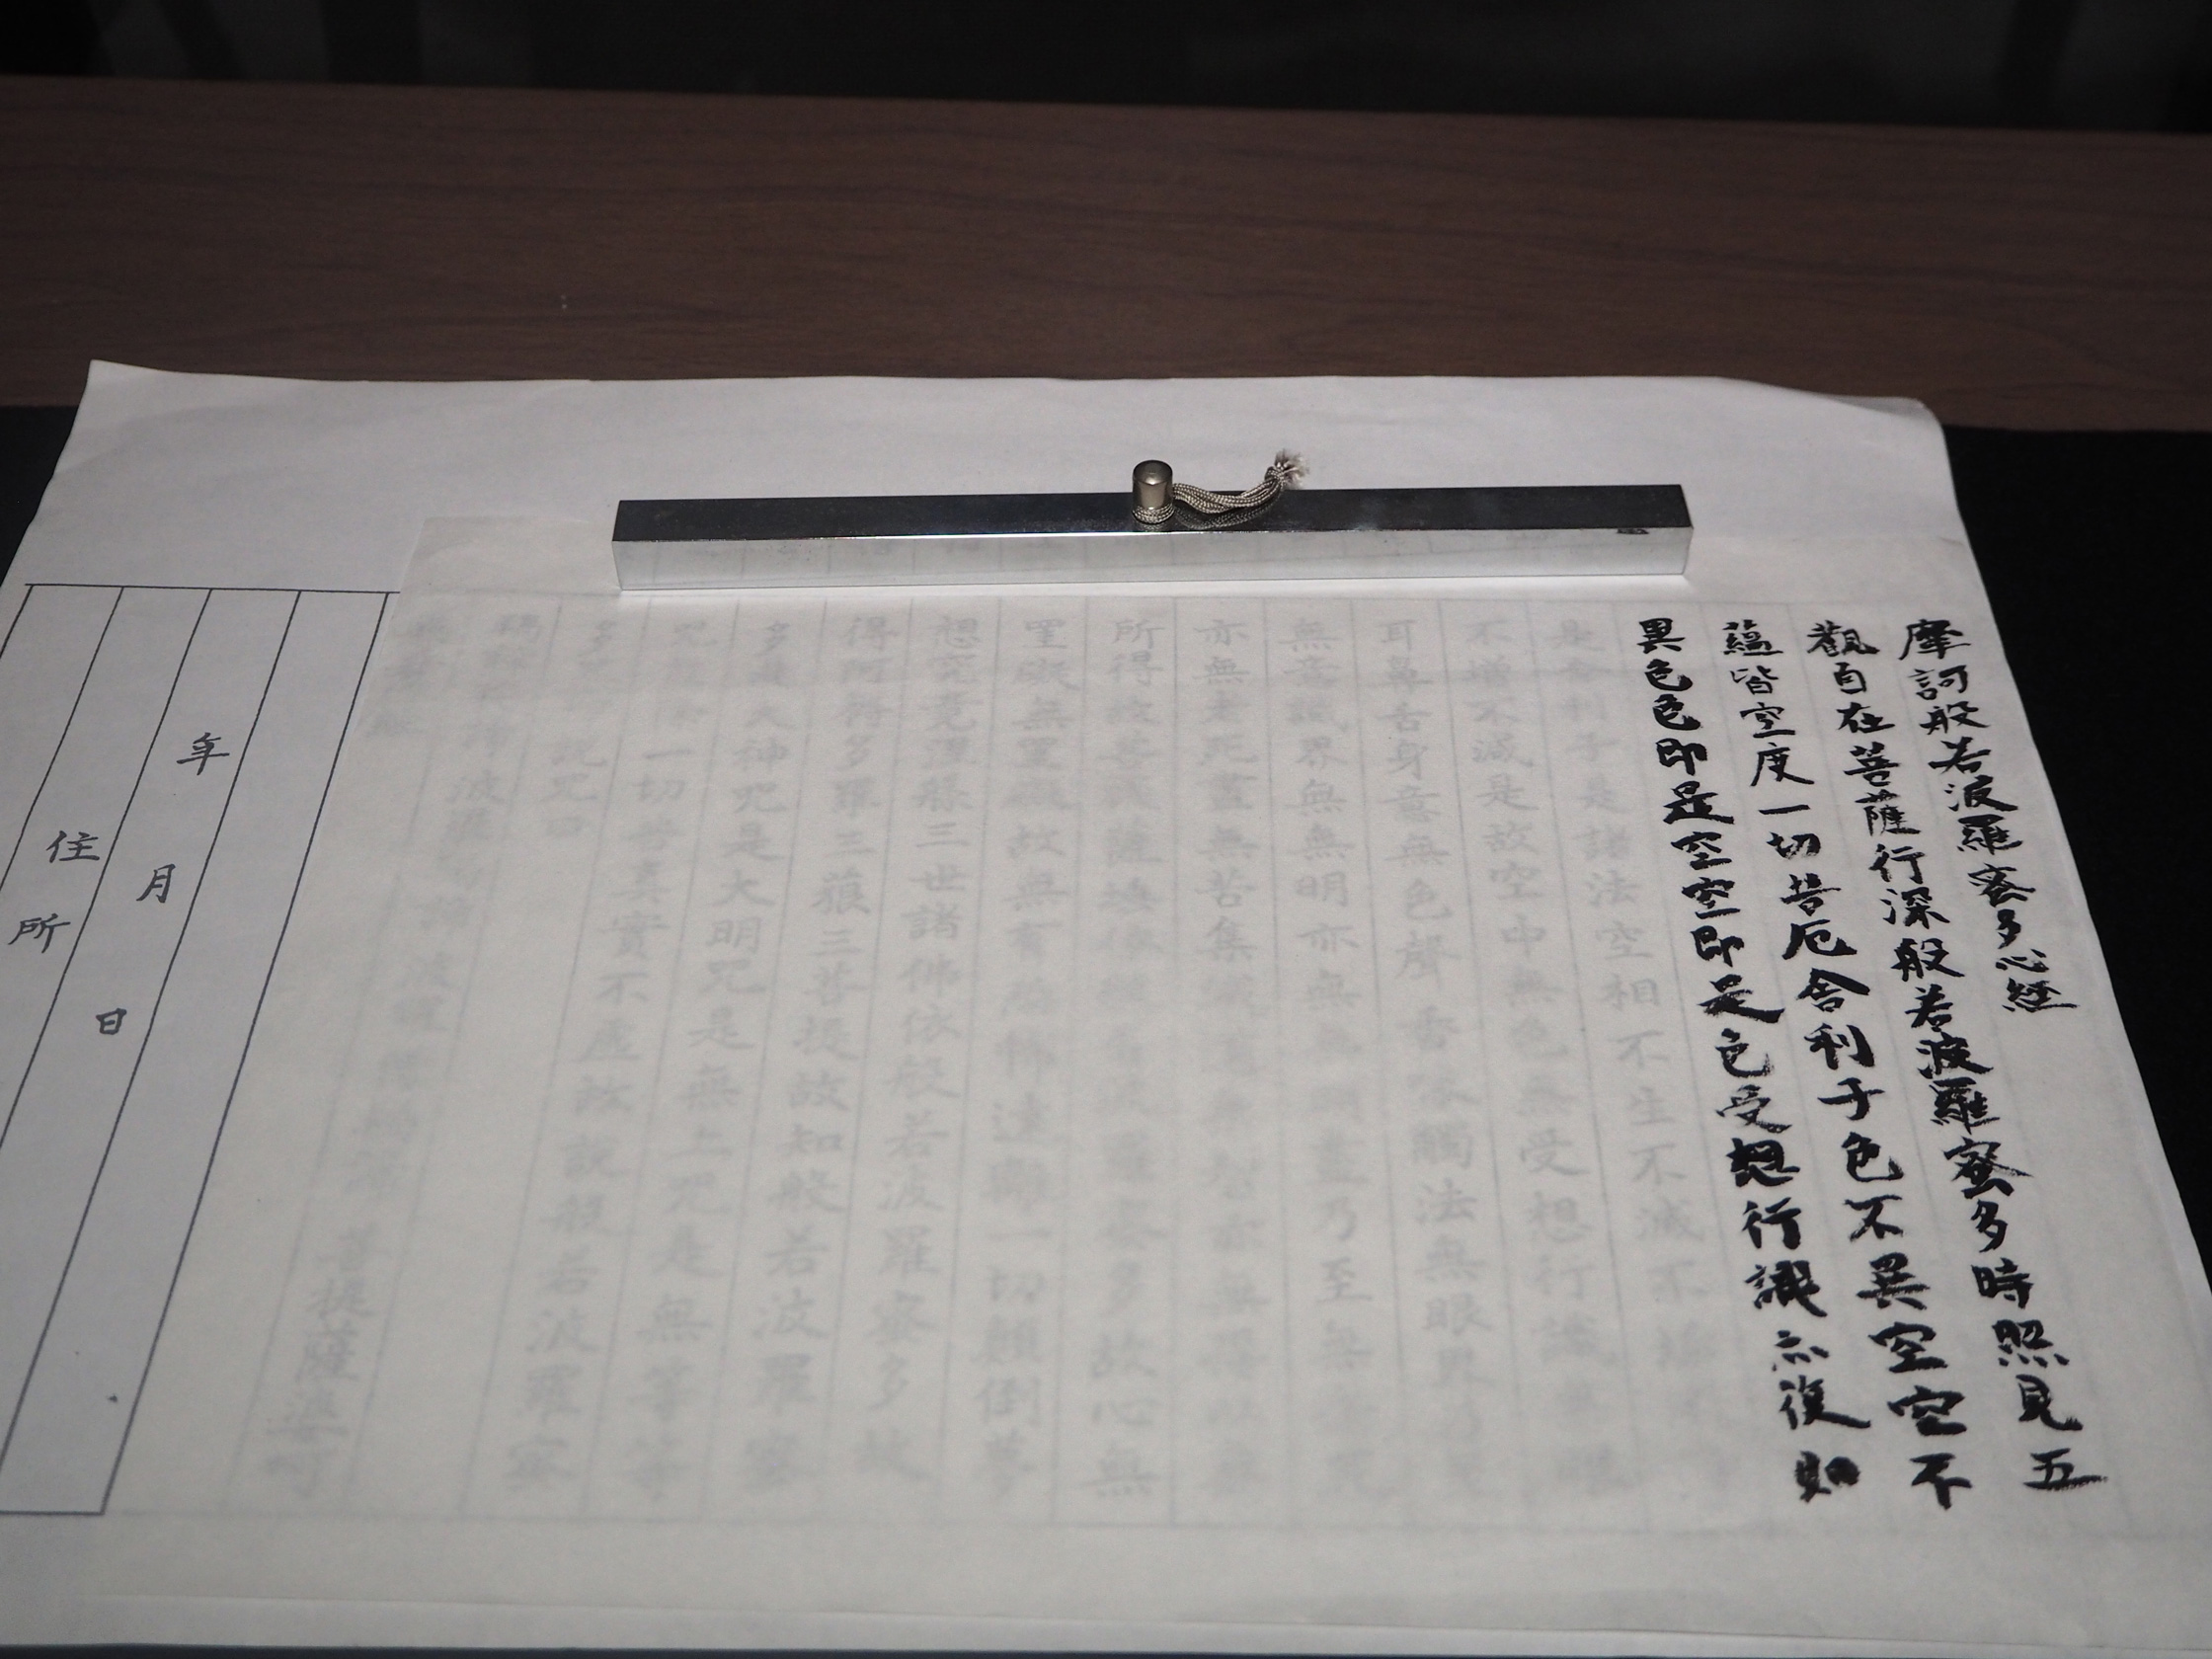 摩訶般若波羅蜜多心経
觀自在菩薩行深般若波羅蜜多時照見五
蘊皆空度一切苦厄舎利子色不異空空不
異色色即是空空即是色受想行識亦復如
是舎利子是諸法空相不生不滅不垢
不増不減是故空中無色無受想行識無眼
耳鼻舌身意無色聲香味觸法無眼界乃至
無意識界無無明亦無無明盡乃至無
亦無老死盡無苦集滅道無智亦無得以無
所得故菩提薩埵依般若波羅蜜多故心無
罣礙無罣礙故無有恐怖遠離一切顛倒夢
想究竟涅槃三世諸佛依般若波羅蜜多故
得阿耨多羅三藐三菩提故知般若波羅蜜
多是大神咒是大明咒是無上咒是無等等
咒能除一切苦真實不虚故説般若波羅蜜
多咒即説咒曰
波羅 波羅 菩提薩婆訶
年 月 日
住所